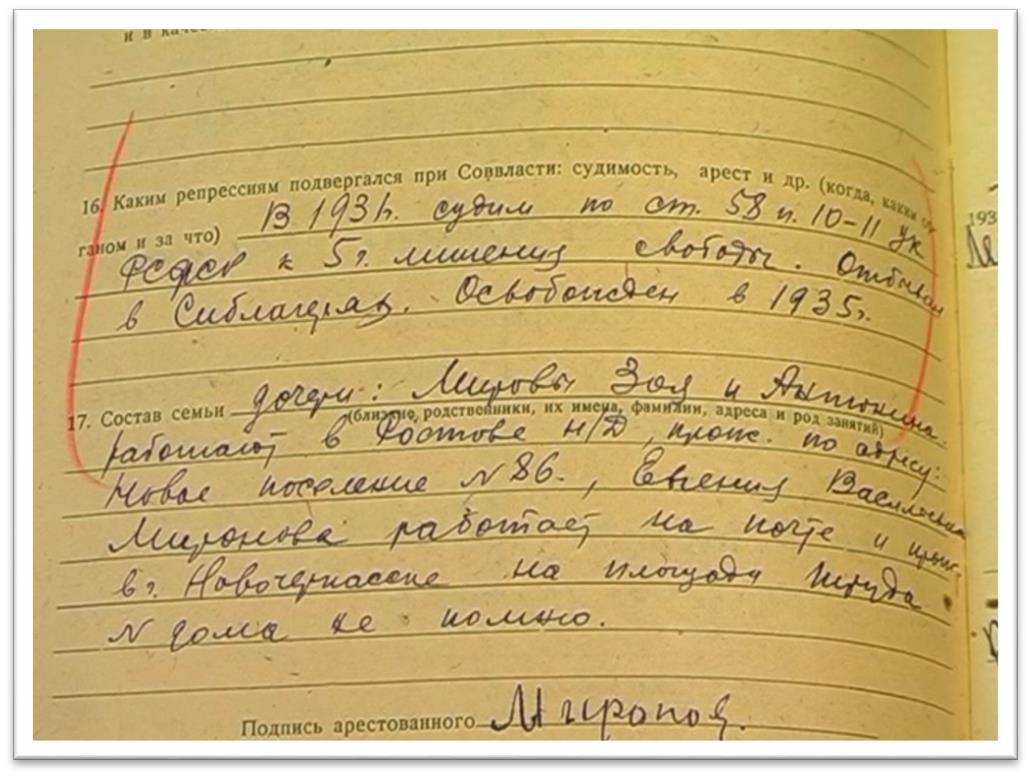 и в каче
16. Каким репрессиям подвергался при Соввласти: судимость, арест и др. (когда, каким ор-
ганом и за что) В 1931г. судим по ст. 58 п. 10-11 УК
РСФСР к 5 г. лишения свободы. Отбывал
в Сиблагерях. Освобожден в 1935г.
17. Состав семьи дочери: Мировы Зоя и Антонина.
(близкие родственники, их имена, фамилии, адреса и род занятий)
работают в Ростове н/Д, прож. по адресу:
Новое поселение N 86., Евгения Васильевна
Миронова работает на почте и прож.
в г. Новочеркасске на площади труда
N дома не помню.
Подпись арестованного
193